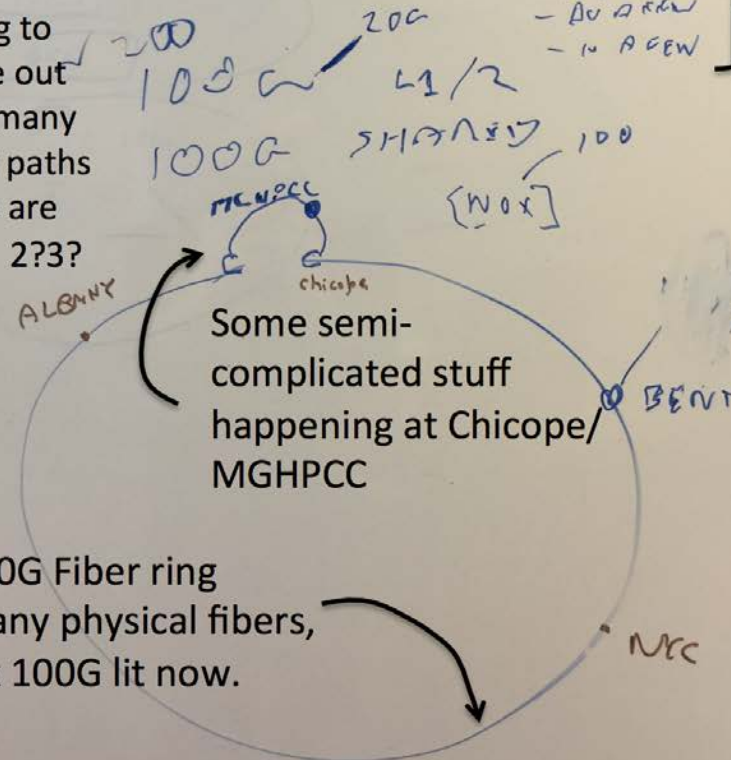 g to
e out
many
paths
are
2?3?
200
100G
20G
L1/2
100G SHARED
100
[NOX]
ALBANY
chicope
Some semi-
complicated stuff
happening at Chicope/
MGHPCC
BENT
0G Fiber ring
any physical fibers,
100G lit now.
NYC